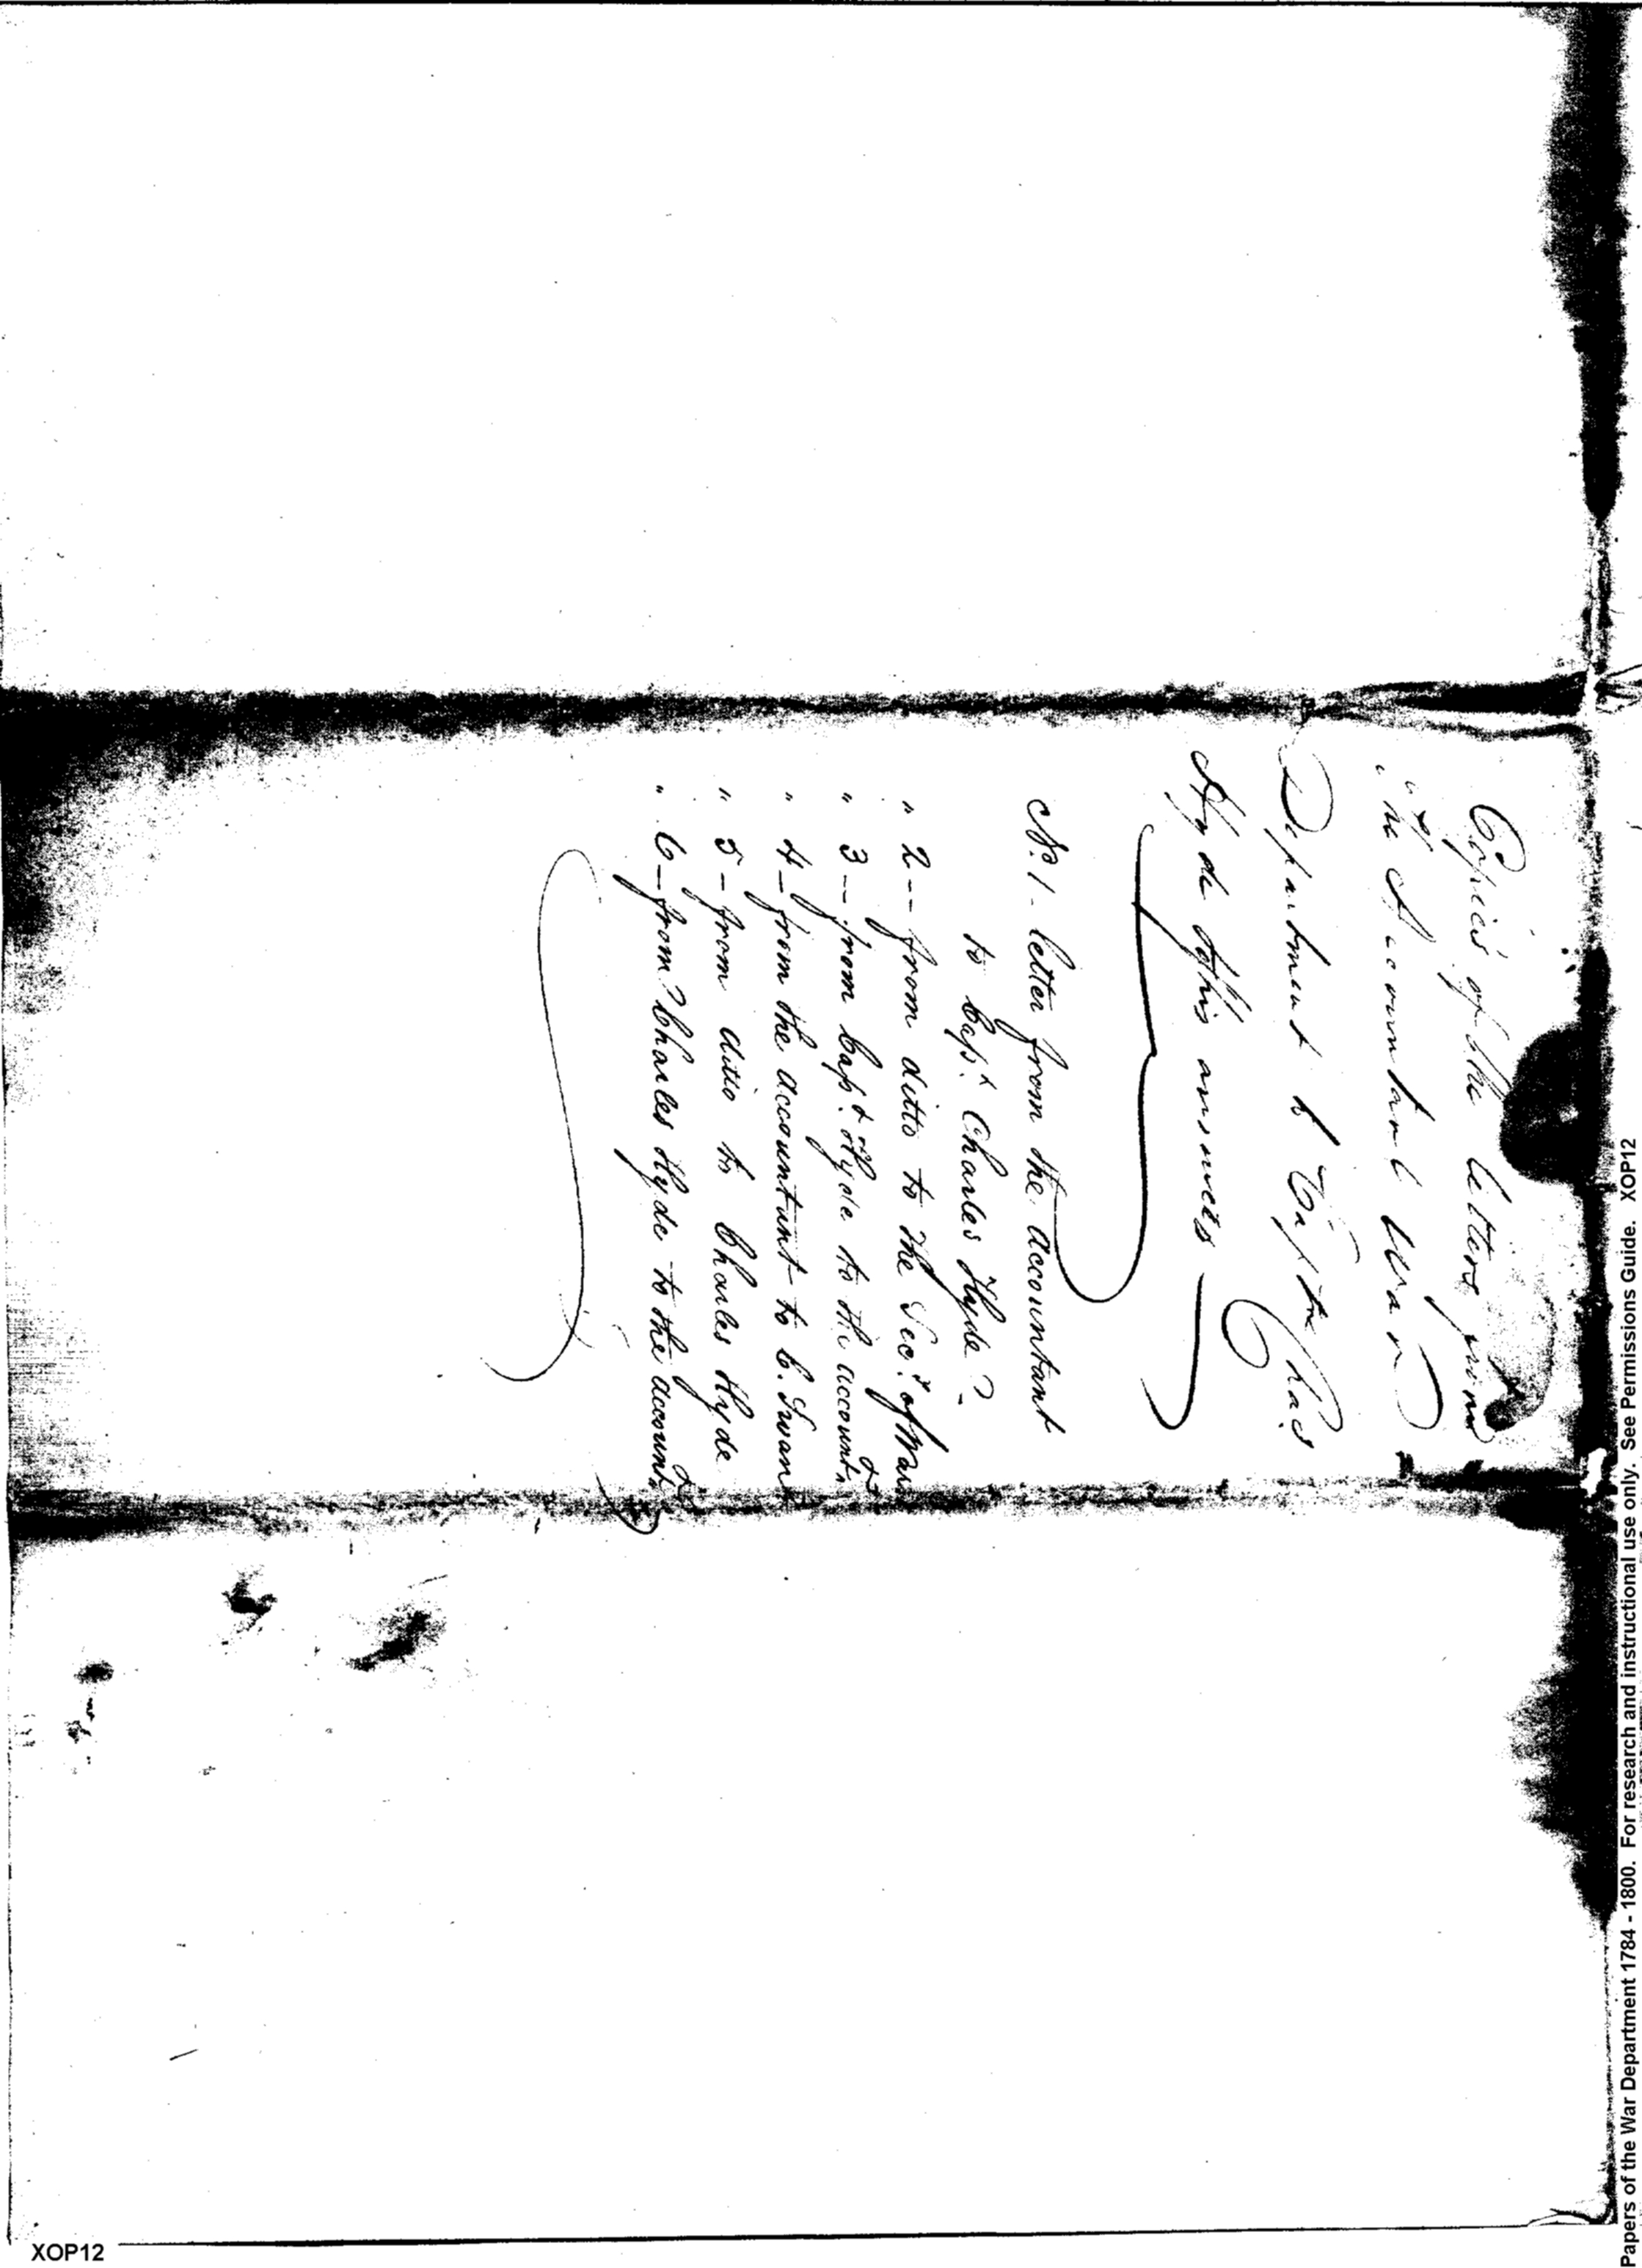 Copies of the letters from
the Accountant War
Department to Captn Chas
Hyde & his answers
No. 1 - letter from the accountant
to Capt. Charles Hyde
" 2 -- from ditto to the Secy. of War
" 3 -- from Capt. Hyde to the account.t
" 4 - from the accountant to C. Swan
" 5 - from ditto to Charles Hyde
" 6 - from Charles Hyde to the account.t
Papers of the War Department 1784 - 1800. For research and instructional use only. See Permissions Guide. XOP12
XOP12